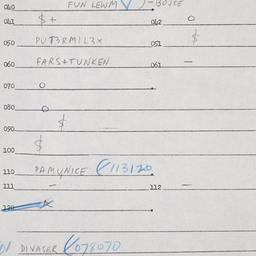 040 FUN LEWM
041 $ + 042 O
050 PUT3RMIL3X 051 $
060 FARS+TUNKEN 061 —
070 O
080 O
090 $
100 $
110 PAMYNICE 113120
111 — 112 —
120
DIVAGER 078070